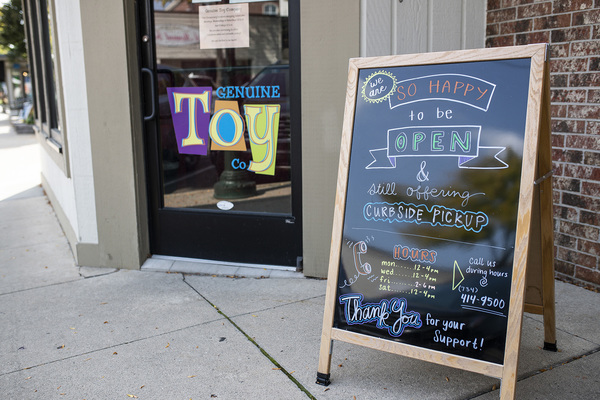 GENUINE
Toy
Co.
we are
SO HAPPY
to be
OPEN
&
still offering
CURBSIDE PICKUP
HOURS
mon........12-4pm
wed........12-4pm
fri........2-6pm
sat........12-4pm
call us
during hours
(734)
414-9500
Thank You for your
Support!